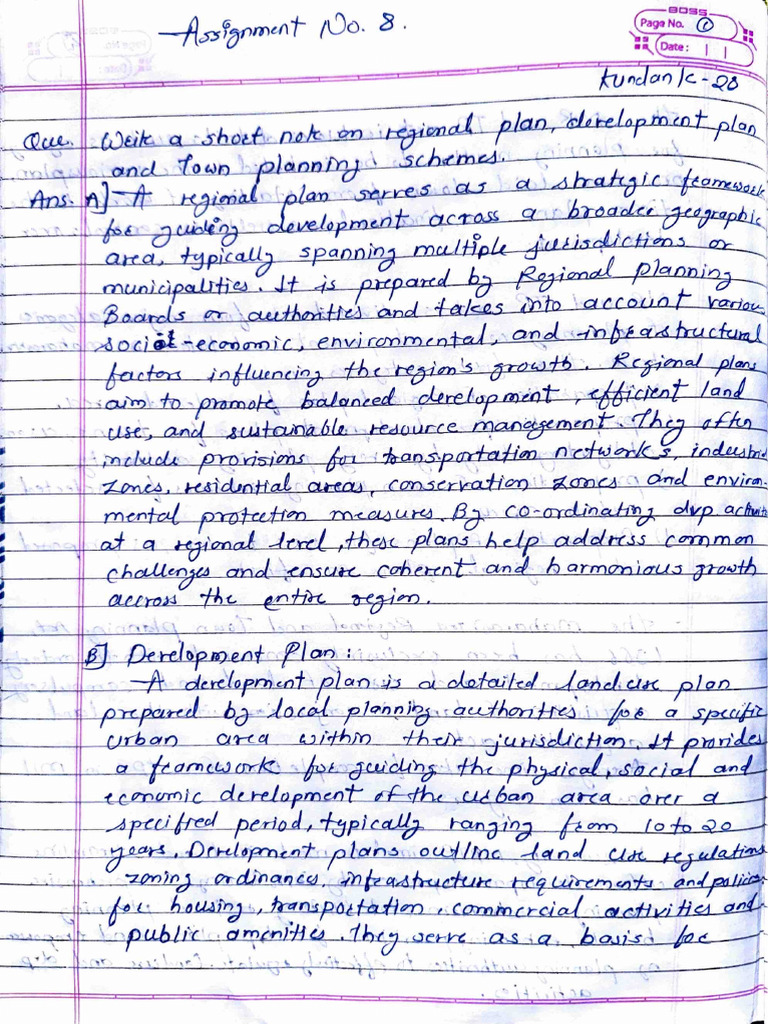 Assignment No. 8.
BOSS
Page No. 1
Date: | |
Kundan K-28
Que. Write a short note on regional plan, development plan
and Town planning schemes.
Ans. A] A regional plan serves as a strategic framework
for guiding development across a broader geographic
area, typically spanning multiple jurisdictions or
municipalities. It is prepared by Regional Planning
Boards or authorities and takes into account variou
socio-economic, environmental, and infrastructural
factors influencing the region's growth. Regional plans
aim to promote balanced development, efficient land
use, and sustainable resource management. They often
include provisions for transportation networks, industri
zones, residential areas, conservation zones and environ-
mental protection measures. By co-ordinating dvp activit
at a regional level, these plans help address common
challenges and ensure coherent and harmonious growth
accross the entire region.
B] Development Plan:
A development plan is a detailed land use plan
prepared by local planning authorities for a specific
urban area within their jurisdiction. It provides
a framework for guiding the physical, social and
economic development of the urban area over a
specified period, typically ranging from 10 to 20
years. Development plans outline land use regulations
zoning ordinances, infrastructure requirements and policies
for housing, transportation, commercial activities and
public amenities. They serve as a basis for